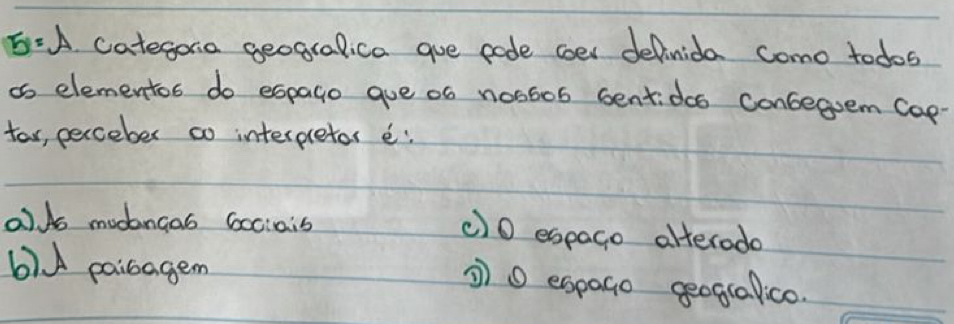 5= A categoria geografica que pode ser definida como todos
os elementos do espaço que os nossos sentidos conseguem cap-
tar, perceber ou interpretar é:
a) As mudanças sociais
b) A paisagem
c) O espaço alterado
D) O espaço geografico.